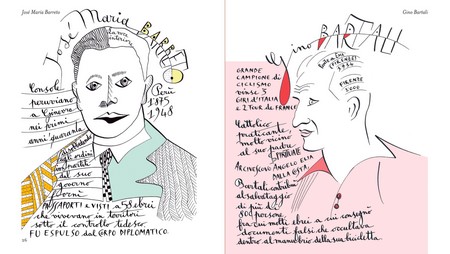 José Maria Barreto
José Maria
BARRETO
Console
peruviano
a Ginevra
nei primi
anni quaranta
Perù
1875
1948
agli ordini
impartiti
dal suo
governo
fornì
PASSAPORTI E VISTI a 58 ebrei
che vivevano in territori
sotto il controllo tedesco.
FU ESPULSO dal GRPO DIPLOMATICO.
26
Gino Bartali
Gino BARTALI
(FIRENZE)
1914
FIRENZE
2000
GRANDE
CAMPIONE DI
CICLISMO
vinse 3
GIRI D'ITALIA
e 2 TOUR de FRANCE
Cattolico
praticante,
molto vicino
al suo padre
SPIRITUALE
ARCIVESCOVO ANGELO ELIA
DALLA COSTA.
Bartali contribuì
al salvataggio
di più di
800 persone,
fra cui molti ebrei a cui consegnò
documenti falsi che occultava
dentro al manubrio della sua bicicletta.